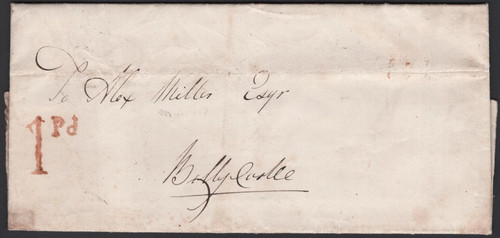 To Alex Miller Esqr
1 Pd
Ballycastle